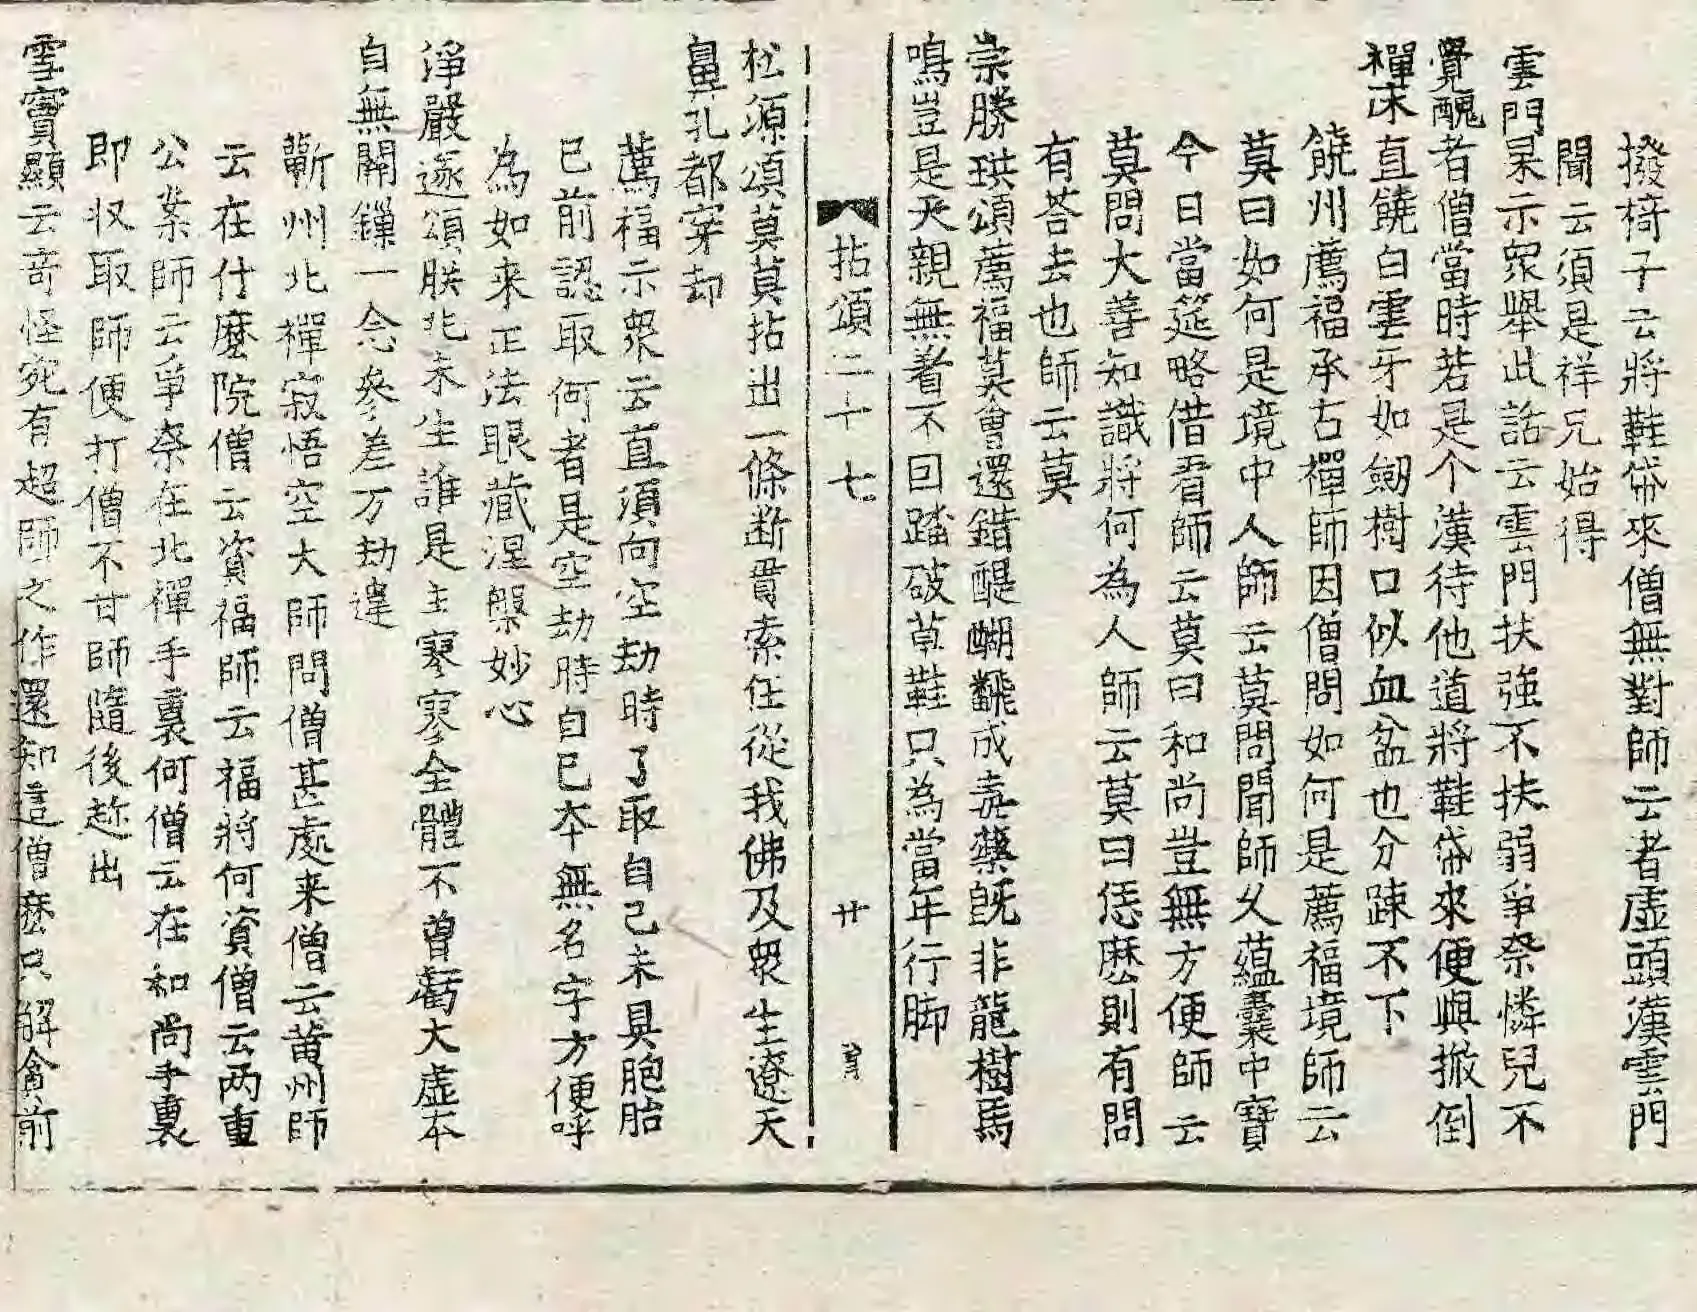 撥椅子云將鞋帒來僧無對師云者虛頭漢雲門
聞云須是祥兄始得
雲門杲示眾舉此話云雲門扶強不扶弱爭柰憐兒不
覺醜者僧當時若是个漢待他道將鞋帒來便與掀倒
禪床直饒白雲牙如劒樹口似血盆也分踈不下
饒州薦福承古禪師因僧問如何是薦福境師云
莫曰如何是境中人師云莫問聞師乆蘊囊中寶
今日當筵略借看師云莫曰和尚豈無方便師云
莫問大善知識將何為人師云莫曰恁麽則有問
有荅去也師云莫
崇勝珙頌薦福莫會還錯醍醐飜成毒藥旣非龍樹馬
鳴豈是天親無著不回踏破草鞋只為當年行脚
拈頌二十七
廿
松源頌莫莫拈出一條断貫索任從我佛及眾生遼天
鼻孔都穿却
薦福示眾云直須向空劫時了取自己未具胞胎
已前認取何者是空劫時自己夲無名字方便呼
為如来正法眼藏涅槃妙心
淨嚴遂頌朕兆未生誰是主寥寥全體不曾虧大虛夲
自無關鏁一念叅差万劫違
蘄州北禪寂悟空大師問僧甚處来僧云黄州師
云在什麽院僧云資福師云福將何資僧云两重
公案師云爭柰在北禪手裏何僧云在和尚手裏
即収取師便打僧不甘師隨後趂出
雪竇顯云竒怪宛有超師之作還知這僧麽只解貪前